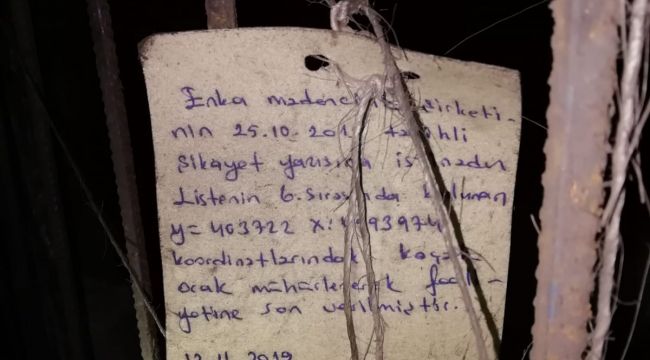 Enka madencilik şirketi-
nin 25.10.201 tarihli
şikayet yazısına istinaden
Listenin 6. sırasında bulunan
y= 403722 x:
koordinatlarındaki kaçak
ocak mühürlenerek faali-
yetine son verilmiştir.
12.11.2019